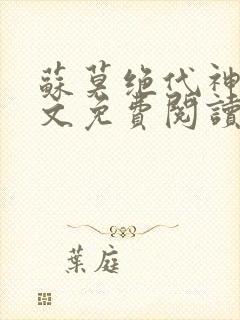 蘇莫绝代神
文免費閱讀
葉庭